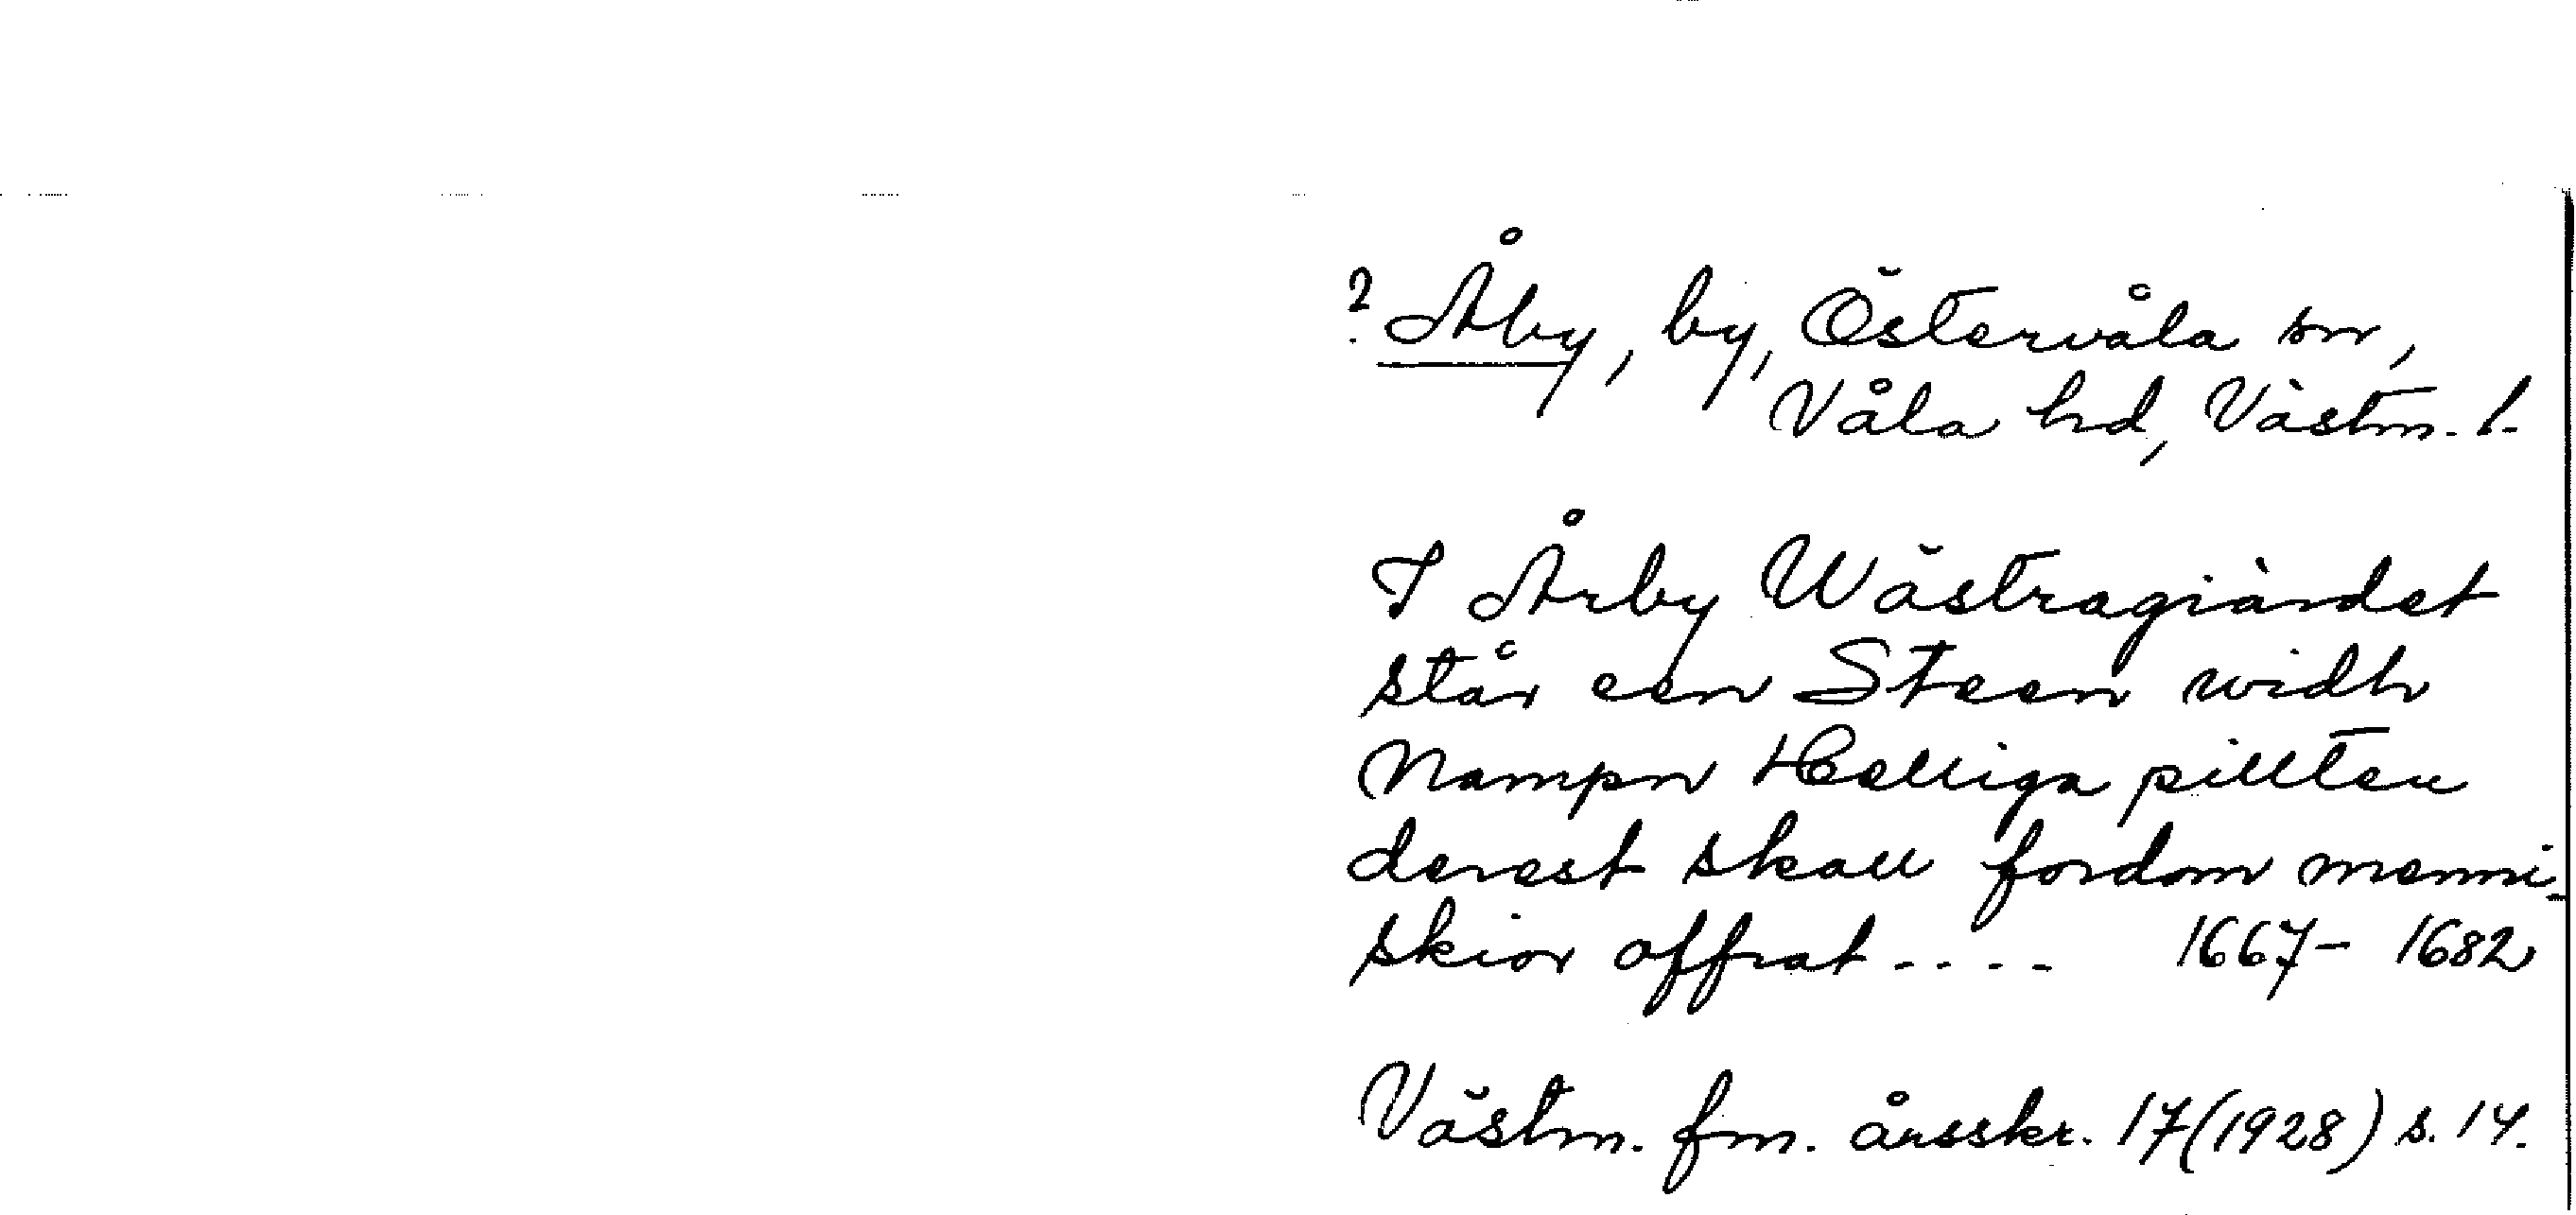 ? Åby, by, Östervåla sn,
Våla hd, Västm. l.
I Årby Wästragiärdet
står een Steen widh
Nampn Helliga pillten
derest skall fordom menni-
skior offrat ---- 1667- 1682
Västm. fm. årsskr. 17(1928) s. 14.